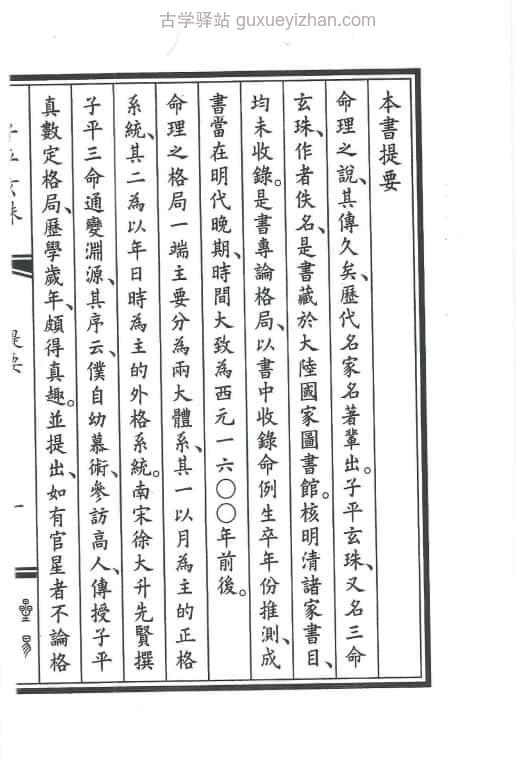 古学驿站 guxueyizhan.com
本書提要
命理之說、其傳久矣、歷代名家名著輩出。子平玄珠、又名三命
玄珠、作者佚名、是書藏於大陸國家圖書館。核明清諸家書目、
均未收錄。是書專論格局、以書中收錄命例生卒年份推測、成
書當在明代晚期、時間大致為西元一六〇〇年前後。
命理之格局一端主要分為兩大體系、其一以月為主的正格
系統、其二為以年日時為主的外格系統。南宋徐大升先賢撰
子平三命通變淵源、其序云、僕自幼慕術、參訪高人、傳授子平
真數定格局、歷學歲年、頗得真趣。並提出、如有官星者不論格
子平玄珠
提要
一
壘易